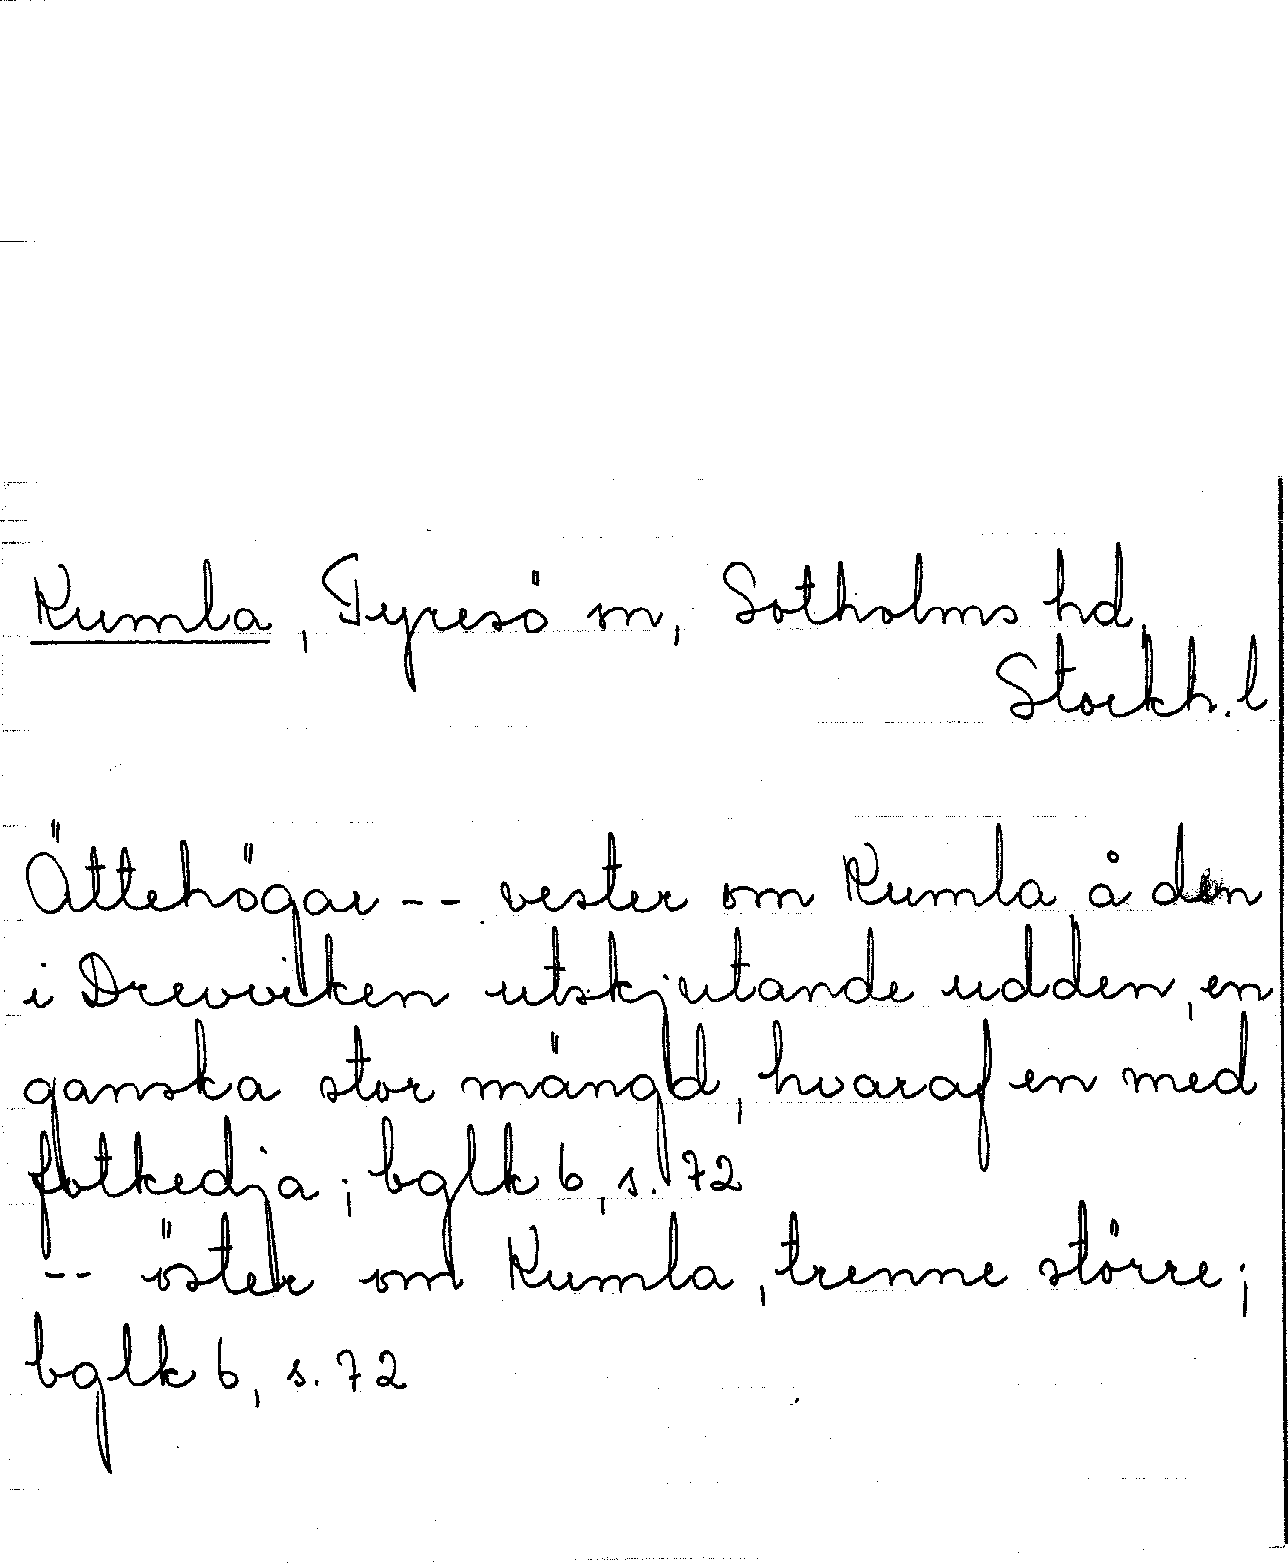 Kumla, Tyresö sn, Sotholms hd,
Stockh. l
Ättehögar -- vester om Kumla å den
i Drevviken utskjutande udden, en
ganska stor mängd, hvaraf en med
fotkedja; bglk 6, s. 72
-- öster om Kumla, trenne större;
bglk 6, s. 72